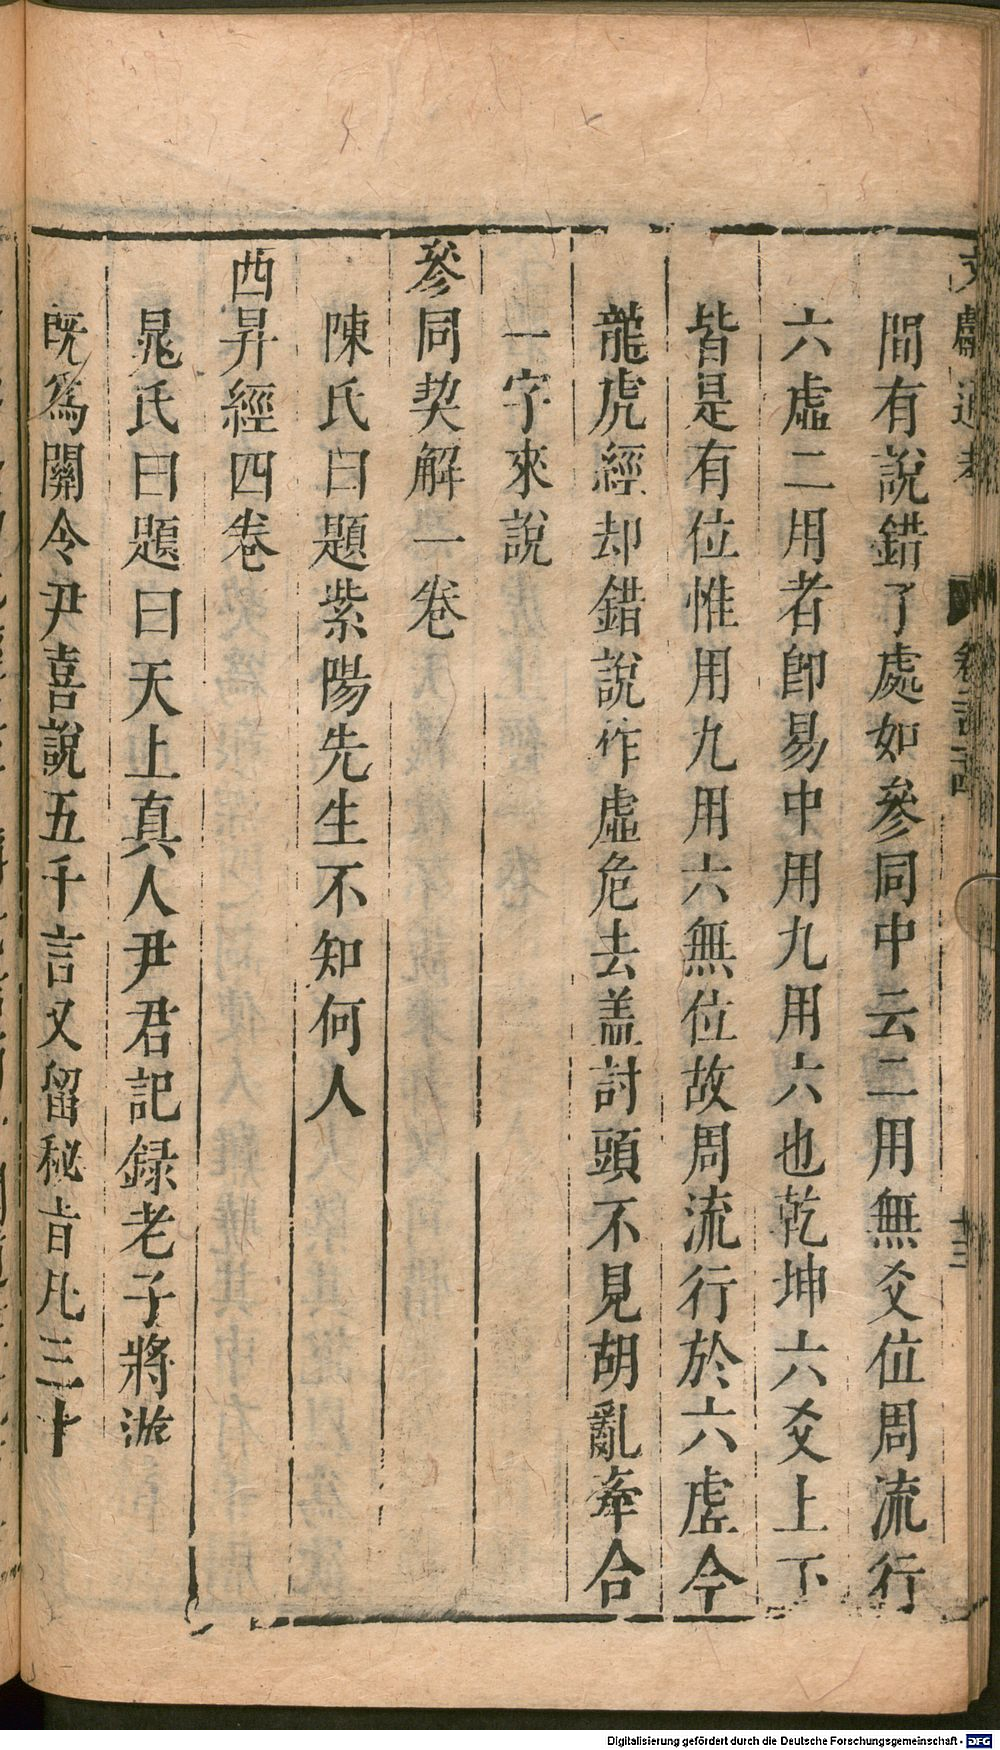 文獻通考 卷二百二十四 十三
間有說錯了處如參同中云二用無爻位周流行
六虛二用者卽易中用九用六也乾坤六爻上下
皆是有位惟用九用六無位故周流行於六虛今
龍虎經却錯說作虛危去盖討頭不見胡亂牽合
一字來說
參同契解一卷
陳氏曰題紫陽先生不知何人
西昇經四卷
晁氏曰題曰天上真人尹君記録老子將游
旣爲關令尹喜說五千言又留秘旨凡三十
Digitalisierung gefördert durch die Deutsche Forschungsgemeinschaft - DFG